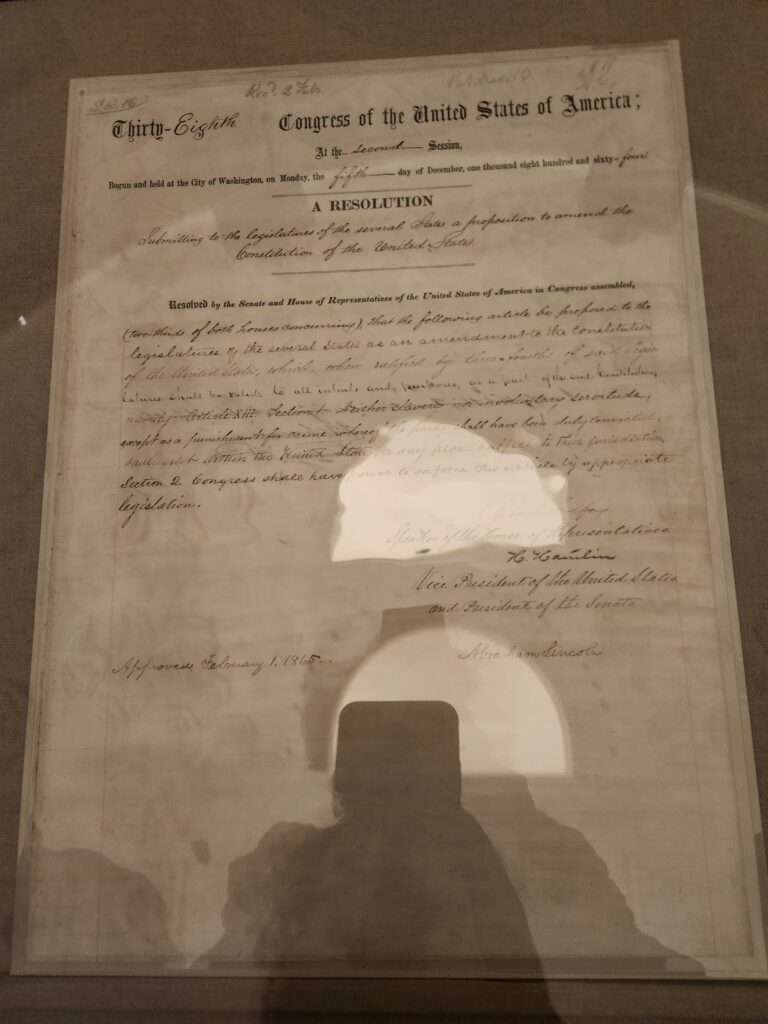 Recd. 2 Feb
Thirty-Eighth Congress of the United States of America;
At the second Session,
Begun and held at the City of Washington, on Monday, the fifth day of December, one thousand eight hundred and sixty-four
A RESOLUTION
Submitting to the legislatures of the several States a proposition to amend the
Constitution of the United States.
Resolved by the Senate and House of Representatives of the United States of America in Congress assembled,
(two thirds of both houses concurring), That the following article be proposed to the
legislatures of the several States as an amendment to the Constitution
of the United States, which, when ratified by three-fourths of said Legis
latures shall be valid, to all intents and purposes, as a part of the said Constitution,
namely: Article XIII. Section 1. Neither slavery nor involuntary servitude,
except as a punishment for crime whereof the party shall have been duly convicted,
shall exist within the United States, or any place subject to their jurisdiction.
Section 2. Congress shall have power to enforce this article by appropriate
legislation.
Speaker of the House of Representatives
H. Hamlin
Vice President of the United States
and President of the Senate
Approved, February 1, 1865. Abraham Lincoln